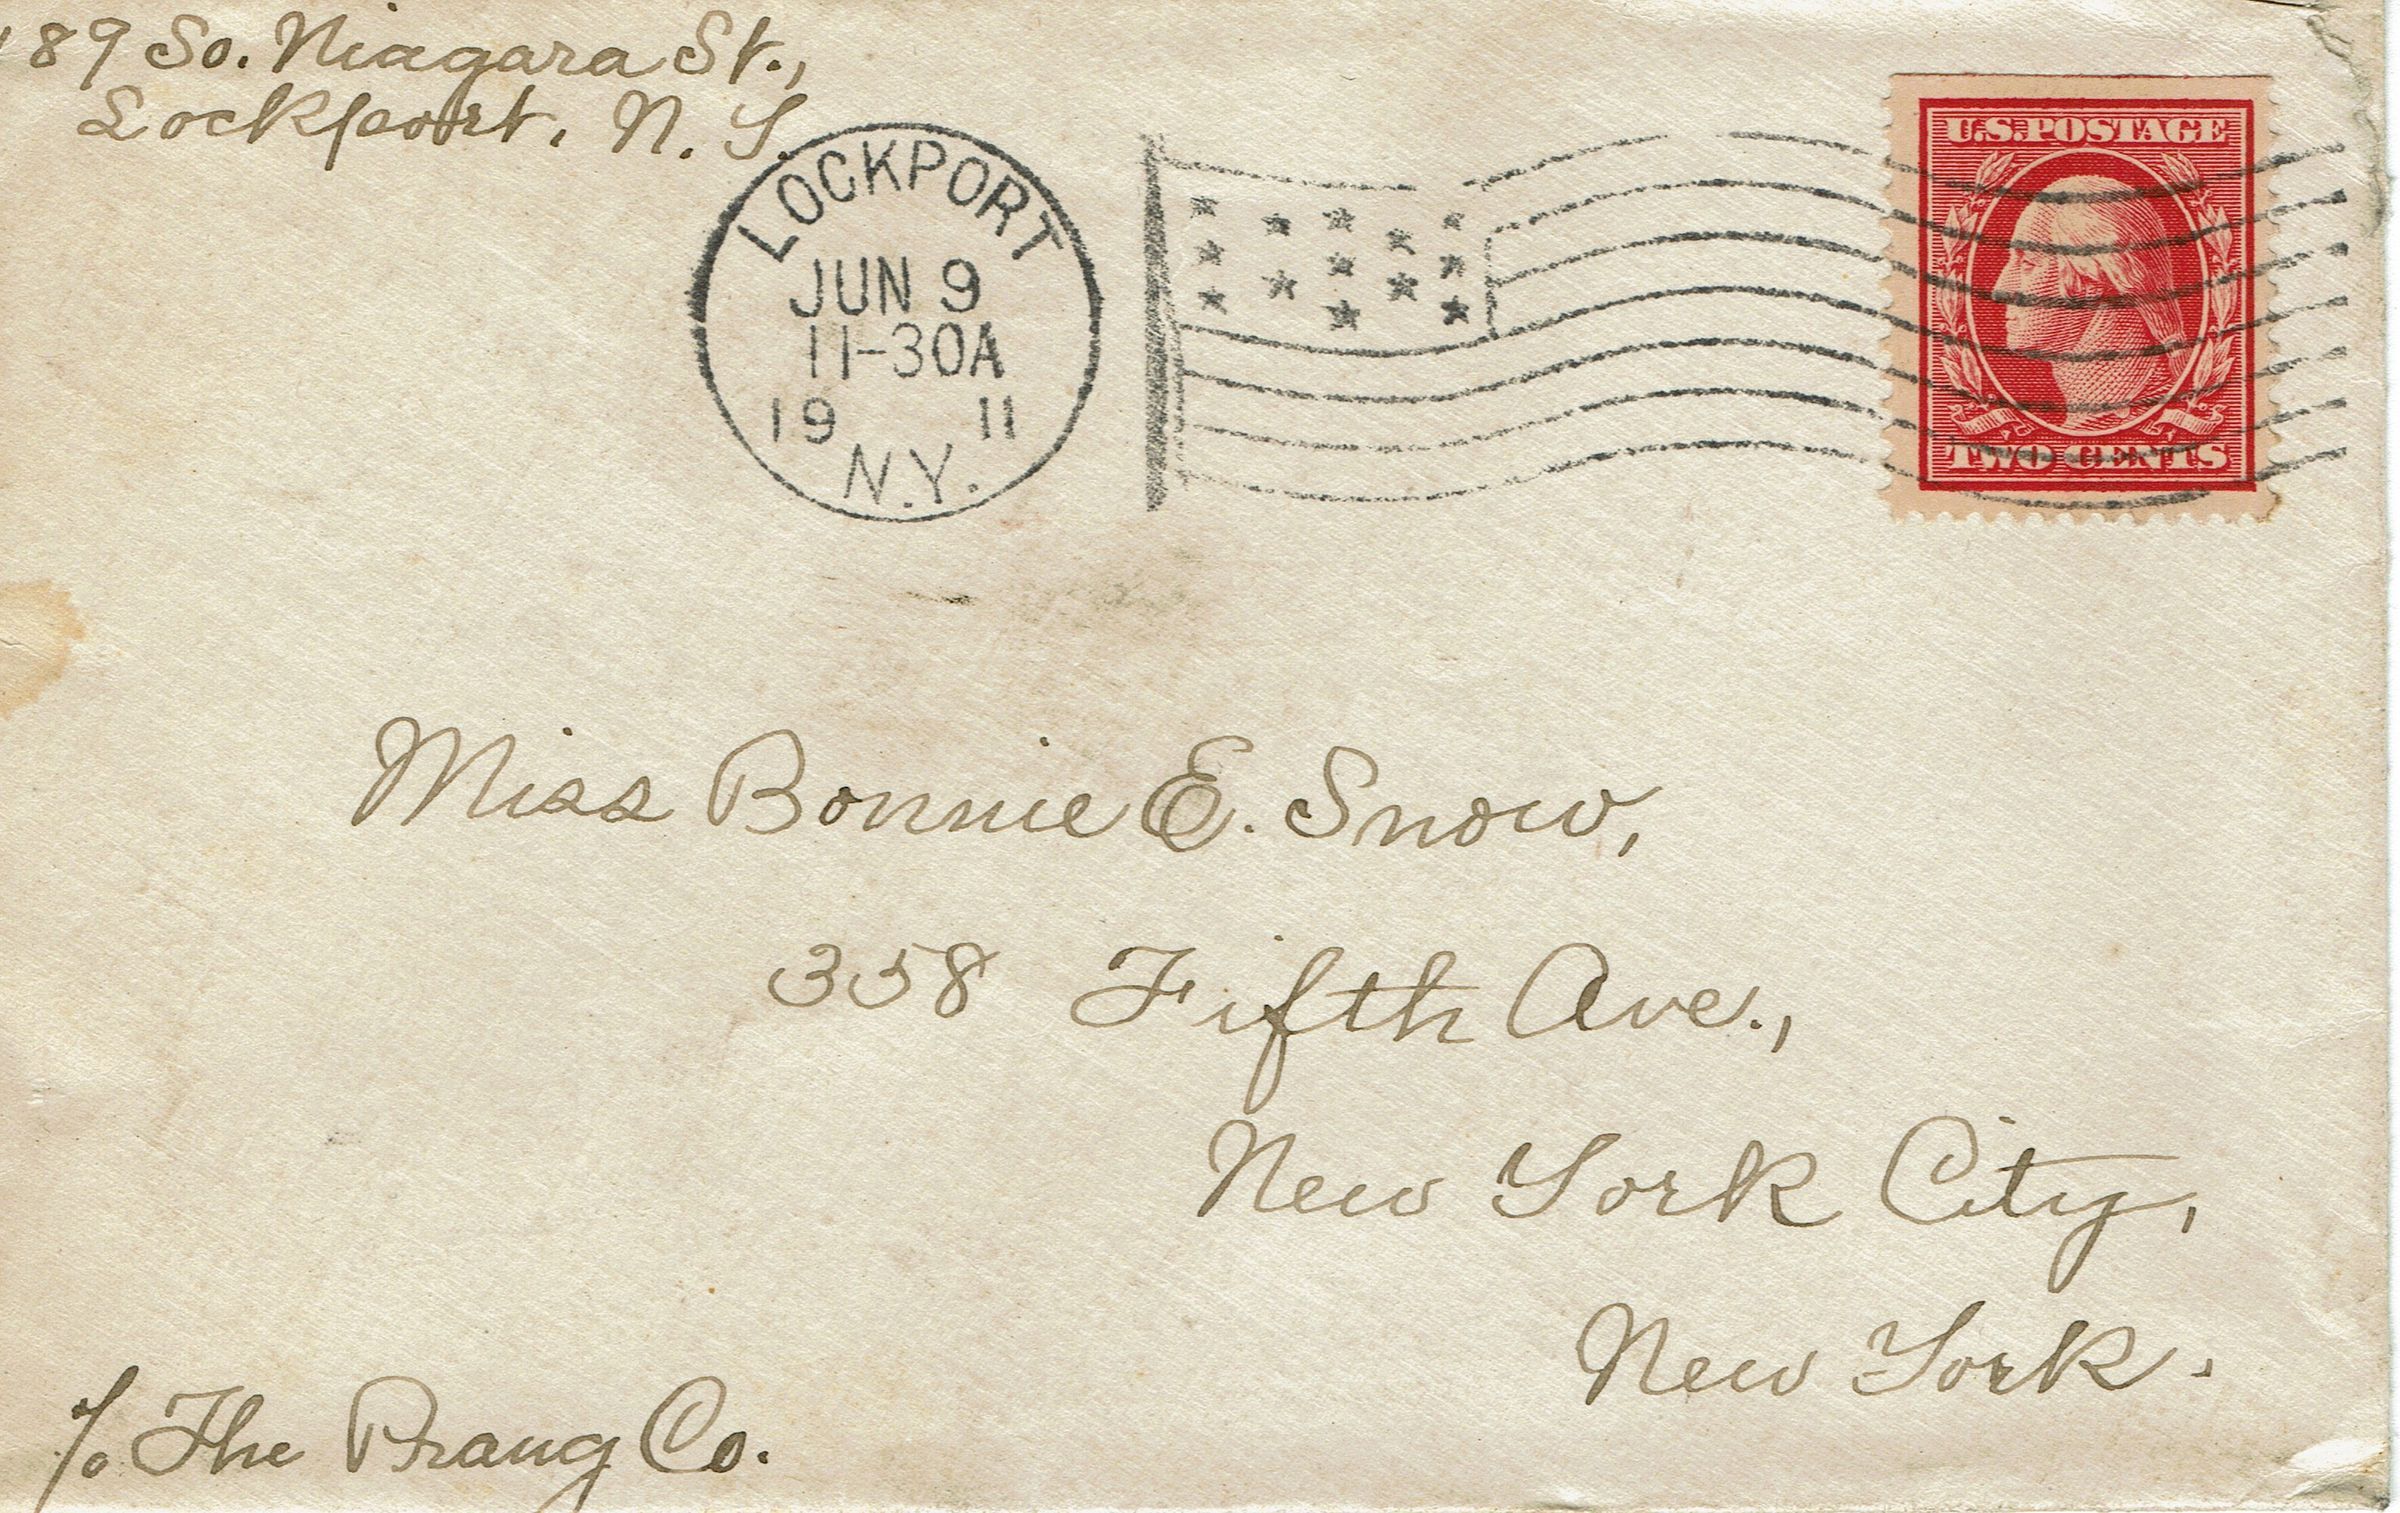 189 So. Niagara St.,
Lockport, N. Y.
LOCKPORT
JUN 9
11-30A
19 11
N.Y.
U.S. POSTAGE
TWO CENTS
Miss Bonnie E. Snow,
358 Fifth Ave.,
New York City,
New York.
c/o The Prang Co.